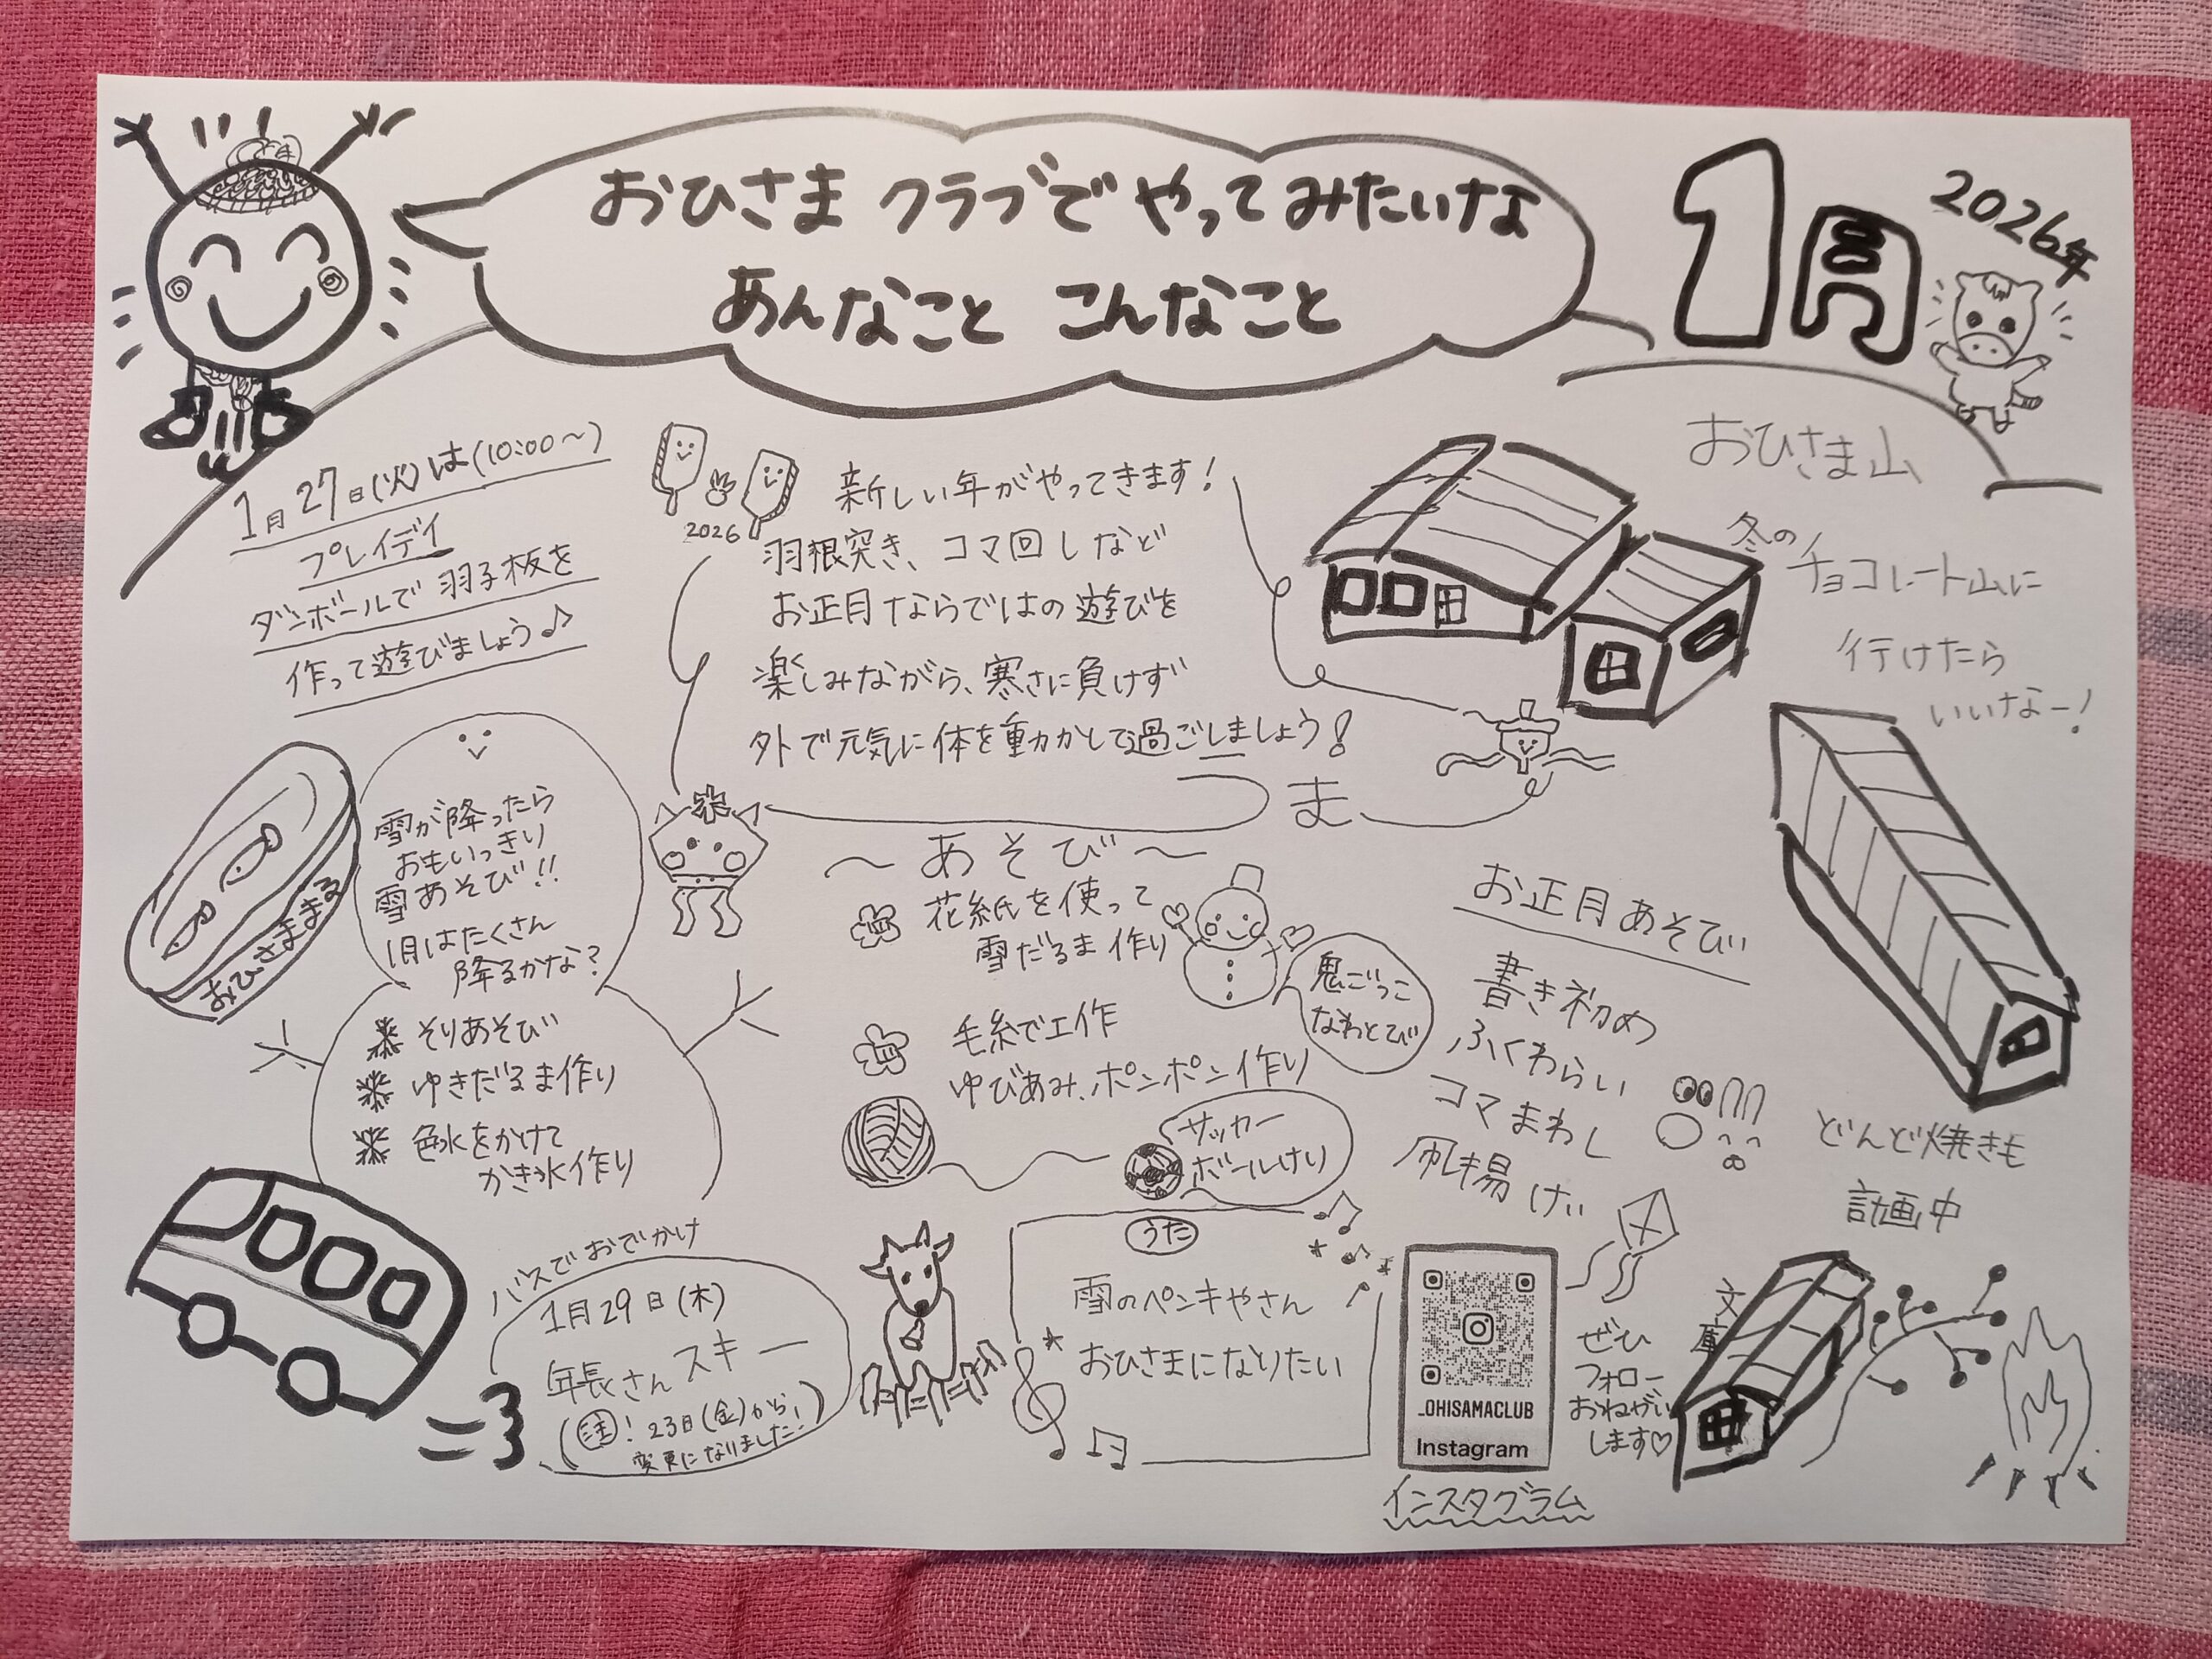 おひさま クラブで やってみたいな
あんなこと こんなこと
1月
2026年
1月27日(火)は(10:00〜)
プレイデイ
ダンボールで羽子板を
作って遊びましょう♪
2026
新しい年がやってきます!
羽根突き、コマ回しなど
お正月ならではの遊びを
楽しみながら、寒さに負けず
外で元気に体を動かして過ごしましょう!
つま
おひさま山
冬の
チョコレート山に
行けたら
いいなー!
おひさままる
雪が降ったら
おもいっきり
雪あそび!!
1月はたくさん
降るかな?
そりあそび
ゆきだるま作り
色水をかけて
かき氷作り
〜あそび〜
花紙を使って
雪だるま作り
鬼ごっこ
なわとび
毛糸で工作
ゆびあみ、ポンポン作り
サッカー
ボールけり
お正月あそび
書き初め
ふくわらい
コマまわし
凧揚げ
どんど焼きも
計画中
バスでおでかけ
1月29日(木)
年長さんスキー
(注!23日(金)から
変更になりました!)
うた
雪のペンキやさん
おひさまになりたい
_OHISAMACLUB
Instagram
インスタグラム
ぜひ
フォロー
おねがい
します♡
文庫